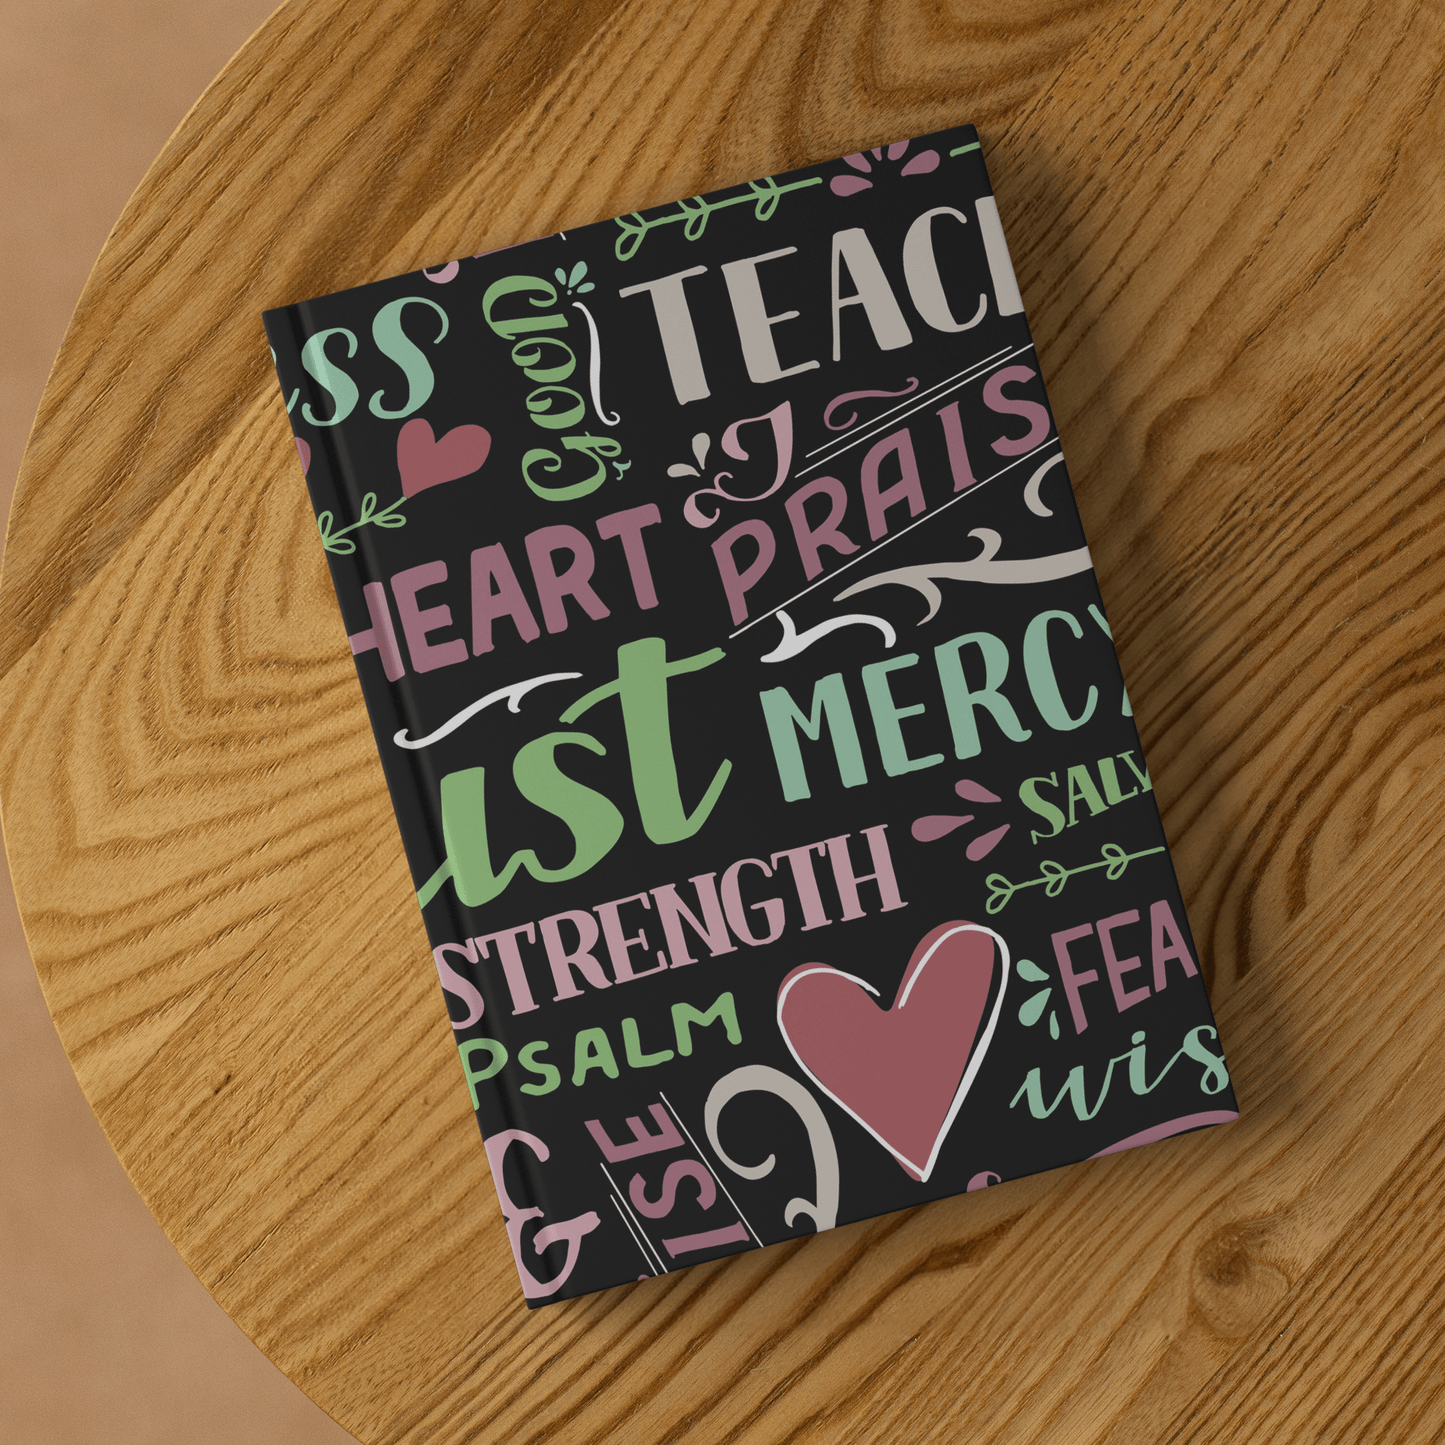 ss
GOOD
TEACH
I
PRAIS
HEART
ust
MERCY
SALV
STRENGTH
FEA
PSALM
wis
&
ISE